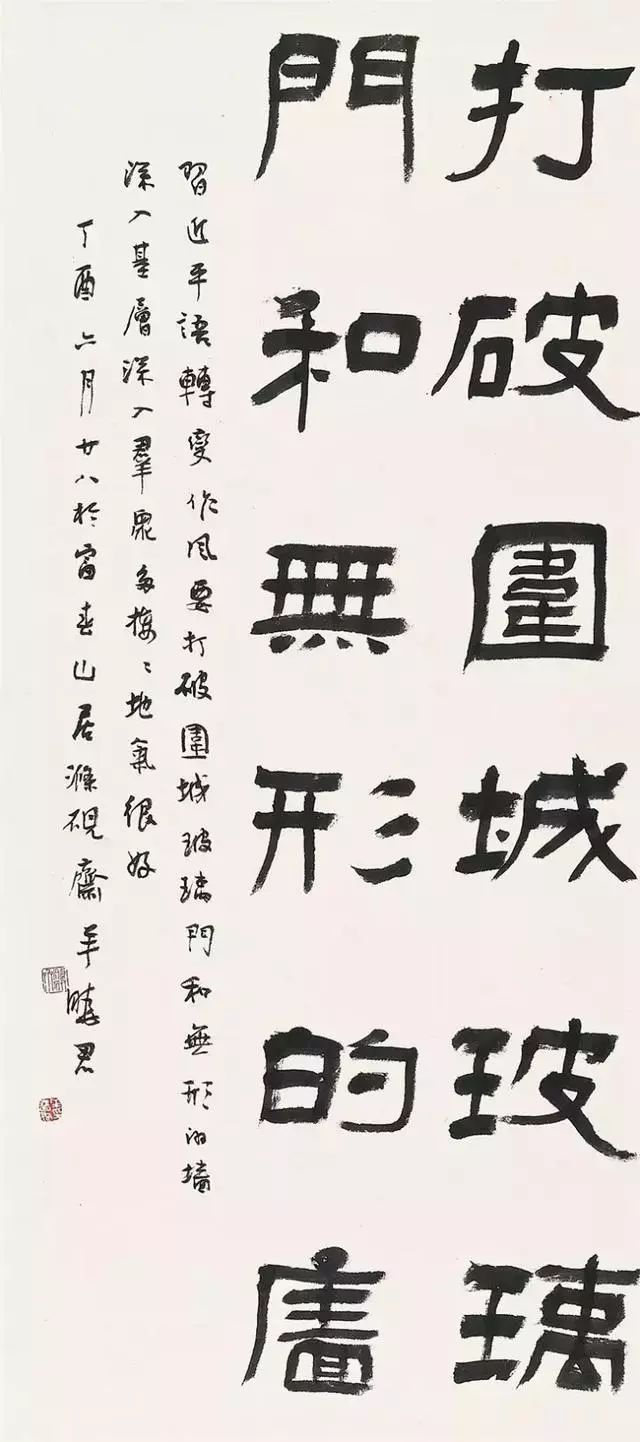 打破圍城玻璃
門和無形的廧
習近平語轉變作風要打破圍城玻璃門和無形的墻
深入基層深入羣衆多接〻地氣很好
丁酉六月廿八於富春山居滌硯齋羊曉君